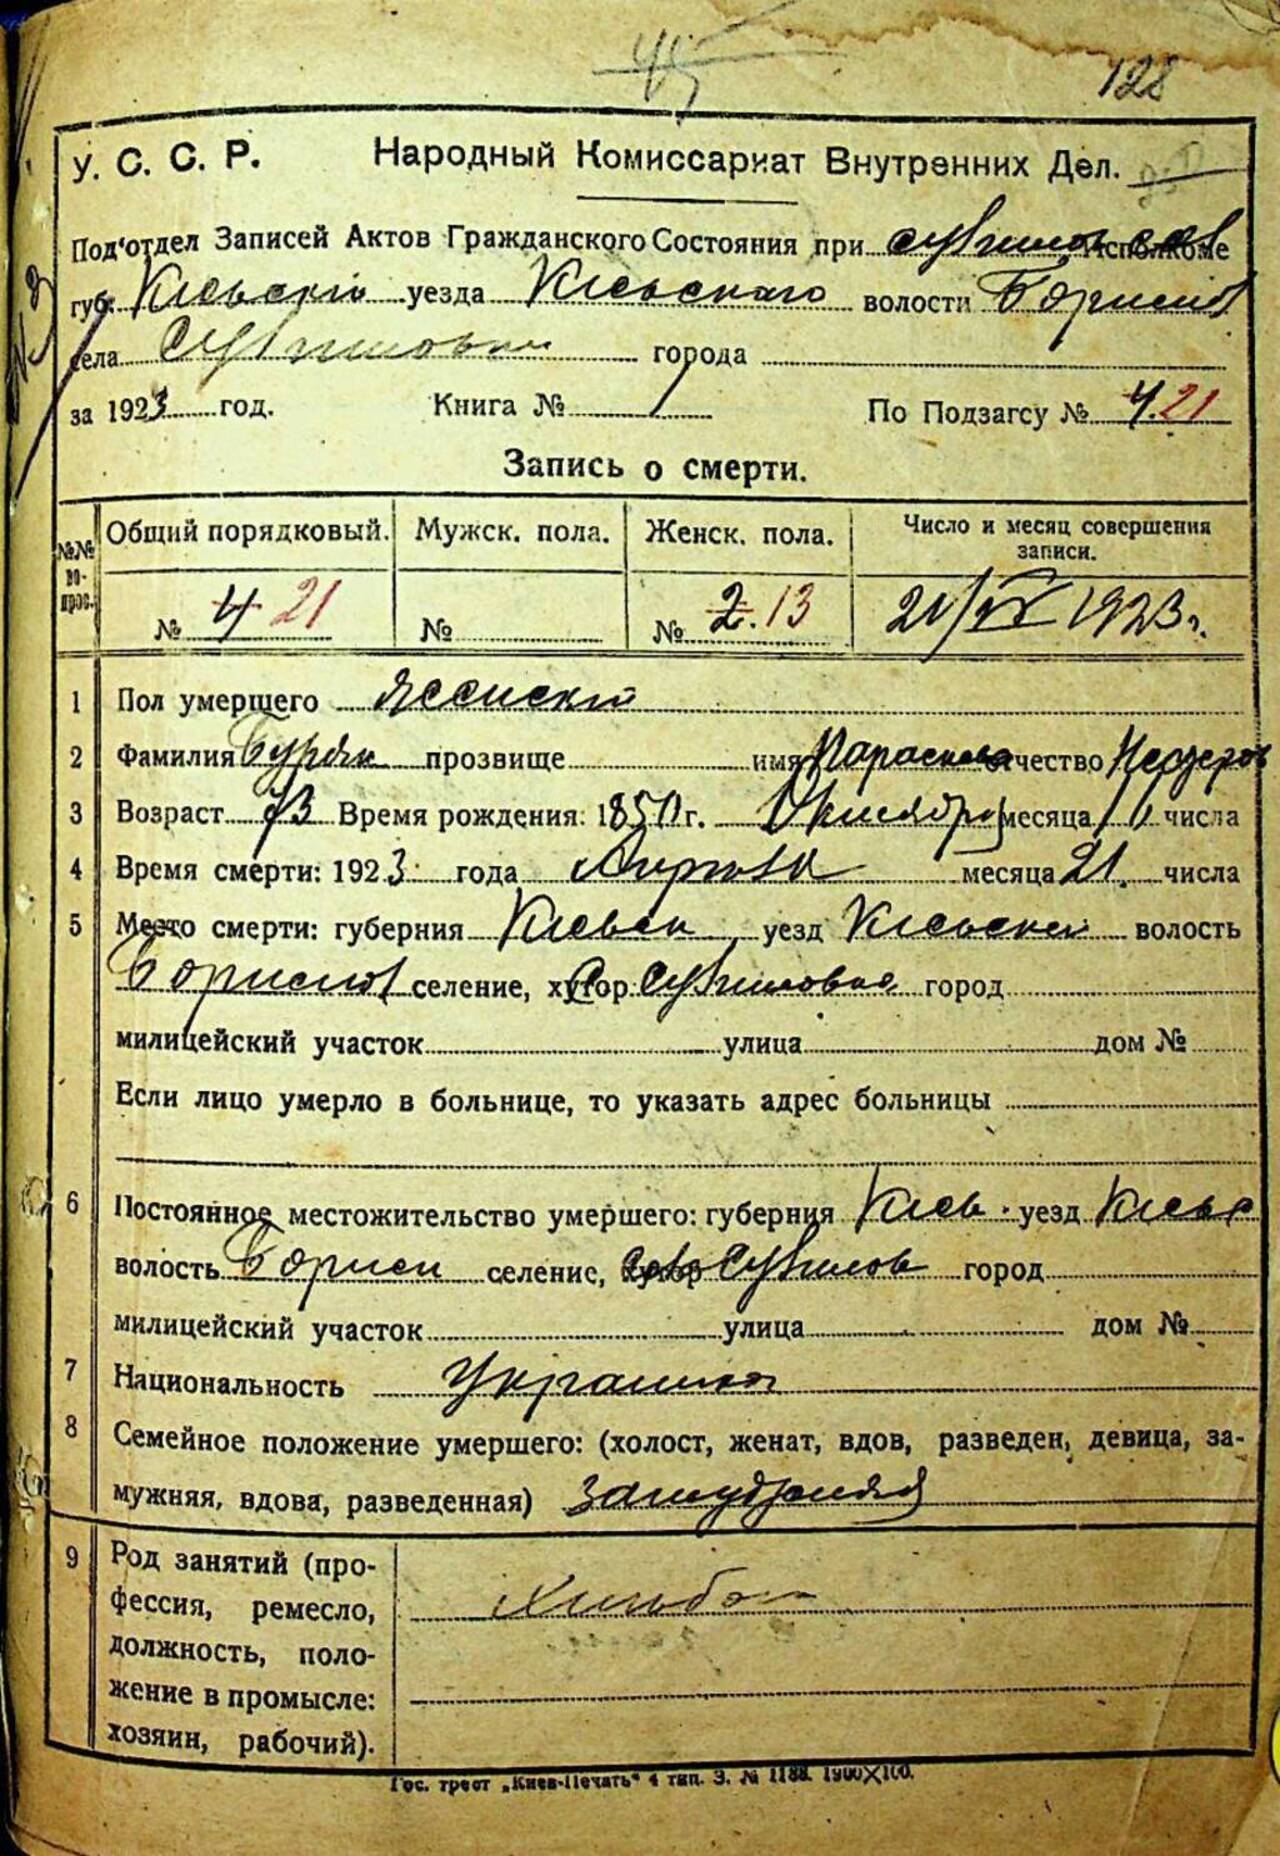 45
128
У. С. С. Р. Народный Комиссариат Внутренних Дел.
Под'отдел Записей Актов Гражданского Состояния при Исполкоме
губ. Кіевскій уезда Кіевскаго волости Бориспол
села города
за 1923 год. Книга № 1 По Подзагсу № 4. 21
Запись о смерти.
№№ во- прос. Общий порядковый. Мужск. пола. Женск. пола. Число и месяц совершения записи.
№ 4 21 № № 2. 13 1923 г.
1 Пол умершего женскій
2 Фамилия Буряк прозвище имя Параскева отчество
3 Возраст 73 Время рождения: 1850 г. Октября месяца числа
4 Время смерти: 1923 года месяца 21. числа
5 Место смерти: губерния Кіевск уезд Кіевский волость
Бориспол селение, хутор город
милицейский участок улица дом №
Если лицо умерло в больнице, то указать адрес больницы
6 Постоянное местожительство умершего: губерния Кіев уезд Кіевс
волость Борисп селение, хутор город
милицейский участок улица дом №
7 Национальность
8 Семейное положение умершего: (холост, женат, вдов, разведен, девица, за-
мужняя, вдова, разведенная) замужняя
9 Род занятий (про-
фессия, ремесло,
должность, поло-
жение в промысле:
хозяин, рабочий).
Гос. трест „Киев-Печать" 4 тип. З. № 1188. 1900×100.